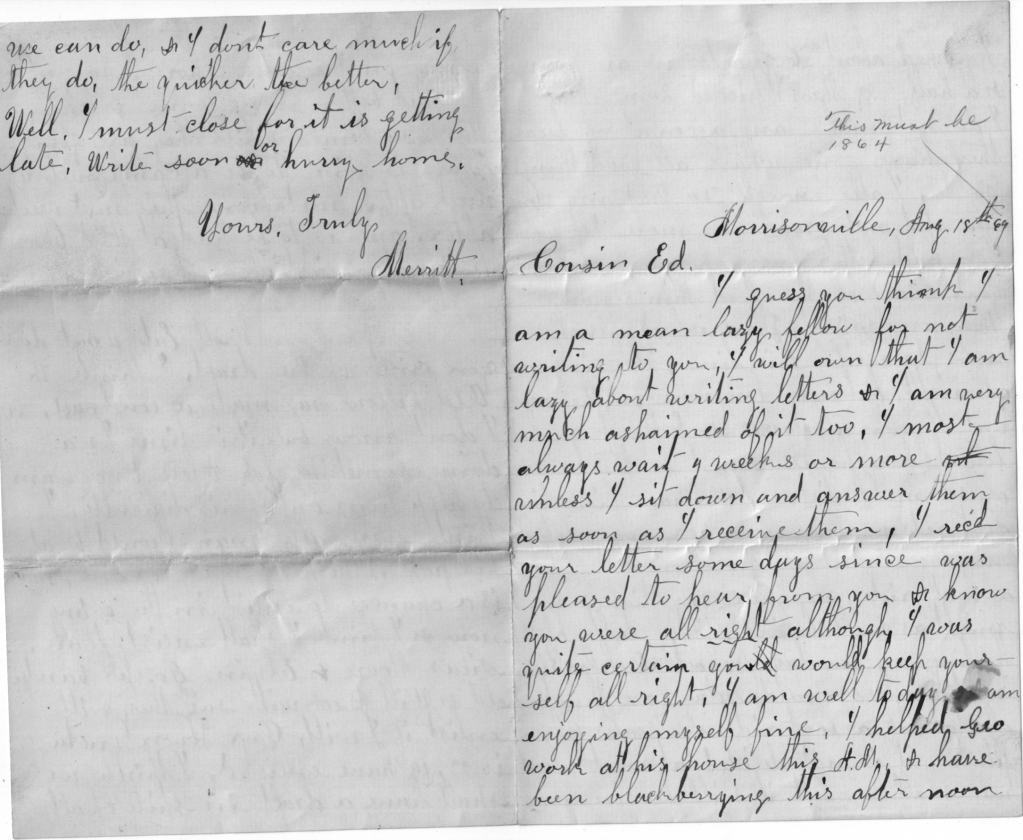 we can do, & I don't care much if
they do, the quicker the better,
Well, I must close for it is getting
late, Write soon or hurry home.
Yours, Truly
Merritt.
This must be
1864
Morrisonville, Aug. 18th
Cousin Ed.
I guess you think I
am a mean lazy fellow for not
writing to you, I will own that I am
lazy about writing letters & I am very
much ashaymed of it too, I most-
always wait 4 weeks or more
unless I sit down and answer them
as soon as I receive them, I rec'd
your letter some days since was
pleased to hear from you & know
you were all right although I was
quite certain you would keep your-
self all right, I am well to day am
enjoying myself fine, I helped Geo
work at his house this A.M., & have
been blackberrying this after noon